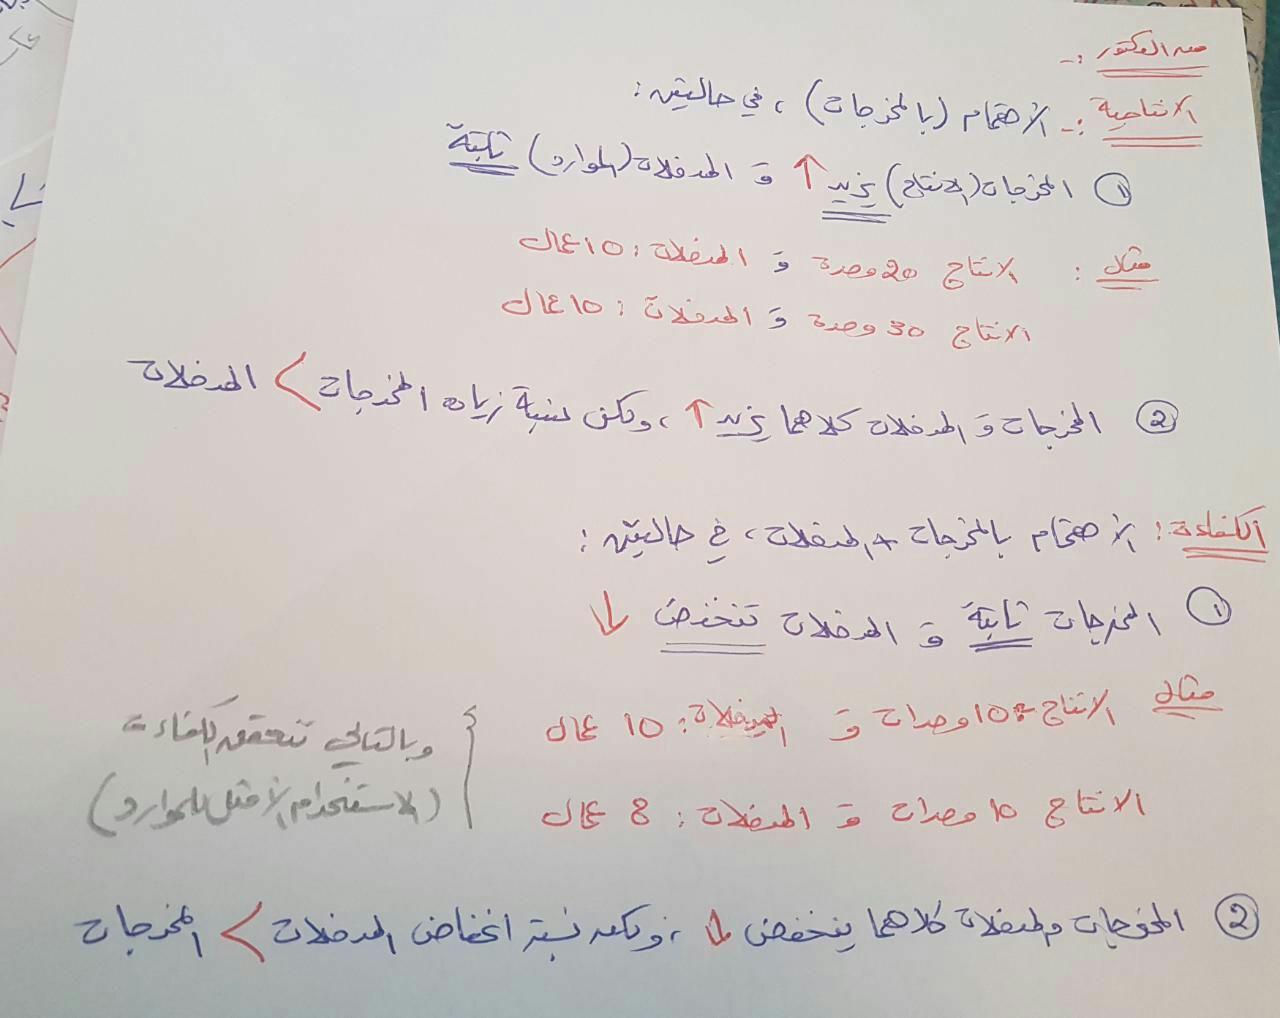 من الدكتور :-
الانتاجية :- الأهتمام (بالمخرجات) ، في حالتين :
① المخرجات (الانتاج) يزيد ↑ وَ المدخلات (الموارد) ثابتة
مثال : الانتاج 20 وحدة وَ المدخلات : 10 عمال
الانتاج 30 وحدة وَ المدخلات : 10 عمال
② المخرجات وَ المدخلات كلاهما يزيد ↑ ، ولكن نسبة زياده المخرجات > المدخلات
الكفاءة : الأهتمام بالمخرجات + المدخلات ، في حالتين :
① المخرجات ثابتة وَ المدخلات تنخفض ↓
مثال الانتاج 10 وحدات وَ المدخلات : 10 عمال
الانتاج 10 وحدات وَ المدخلات : 8 عمال
وبالتالي تتحقق الكفاءة
(الاستخدام الأمثل للموارد)
② المخرجات والمدخلات كلاهما ينخفض ↓ ، ولكن نسبة انخفاض المدخلات > المخرجات